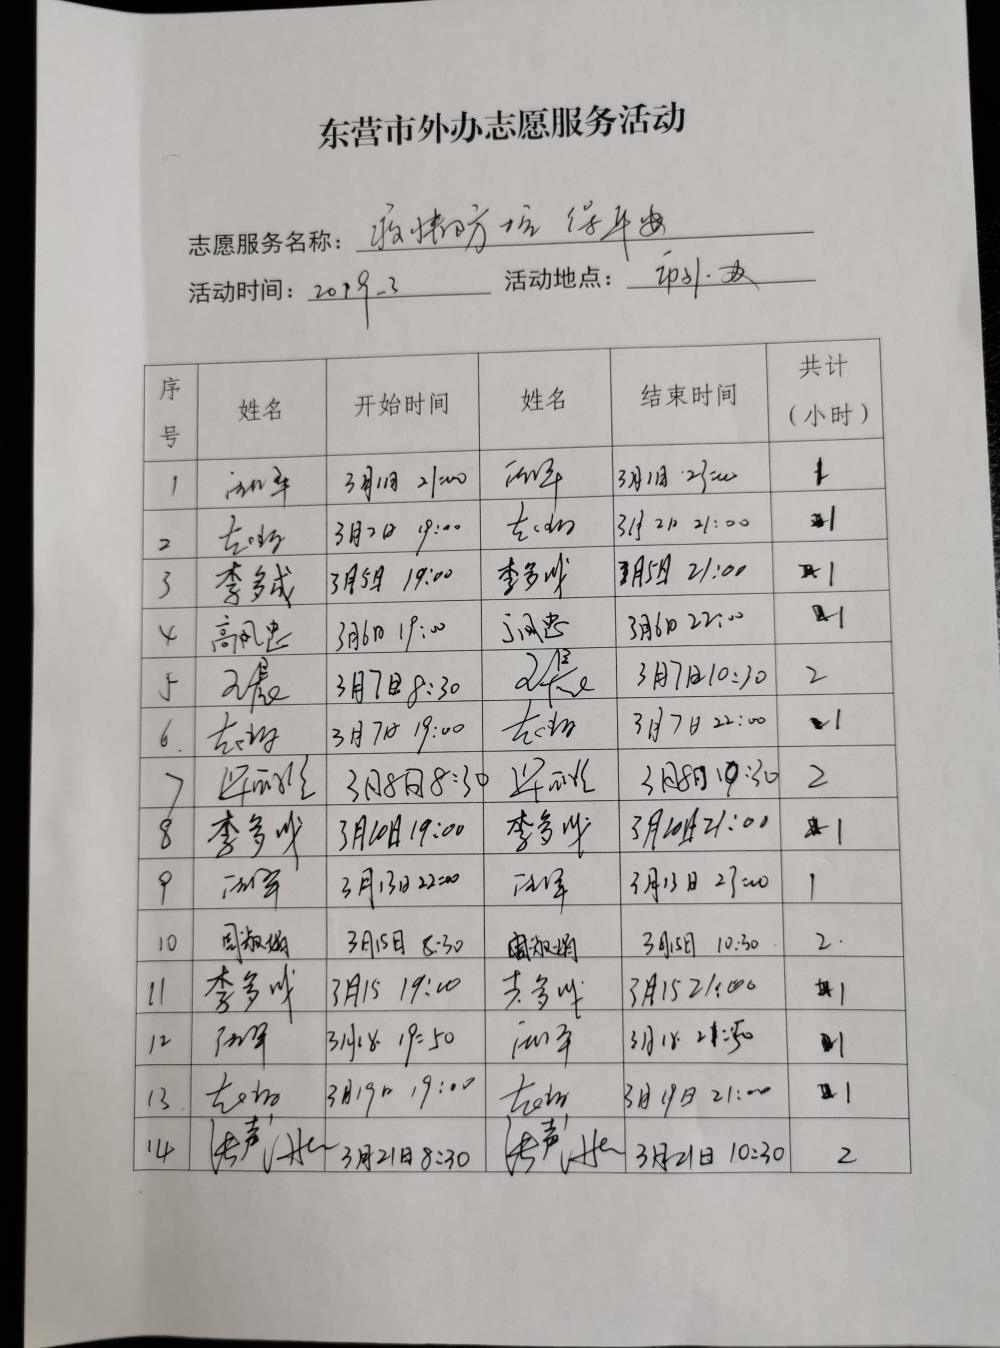 东营市外办志愿服务活动
志愿服务名称：疫情防控 保平安
活动时间：2019.3 活动地点：市外办
序号 姓名 开始时间 姓名 结束时间 共计（小时）
1 3月1日 21:00 3月1日 23:00 1
2 3月2日 19:00 3月2日 21:00 1
3 李多成 3月5日 19:00 李多成 3月5日 21:00 1
4 高凤忠 3月6日 19:00 3月6日 22:00 1
5 3月7日 8:30 3月7日 10:30 2
6 3月7日 19:00 3月7日 22:00 1
7 3月8日 8:30 3月8日 10:30 2
8 李多成 3月10日 19:00 李多成 3月10日 21:00 1
9 3月13日 22:00 3月13日 23:00 1
10 周淑娟 3月15日 8:30 周淑娟 3月15日 10:30 2
11 李多成 3月15 19:00 李多成 3月15 21:00 1
12 3月18 19:50 3月18 21:50 1
13 3月19日 19:00 3月19日 21:00 1
14 3月21日 8:30 3月21日 10:30 2